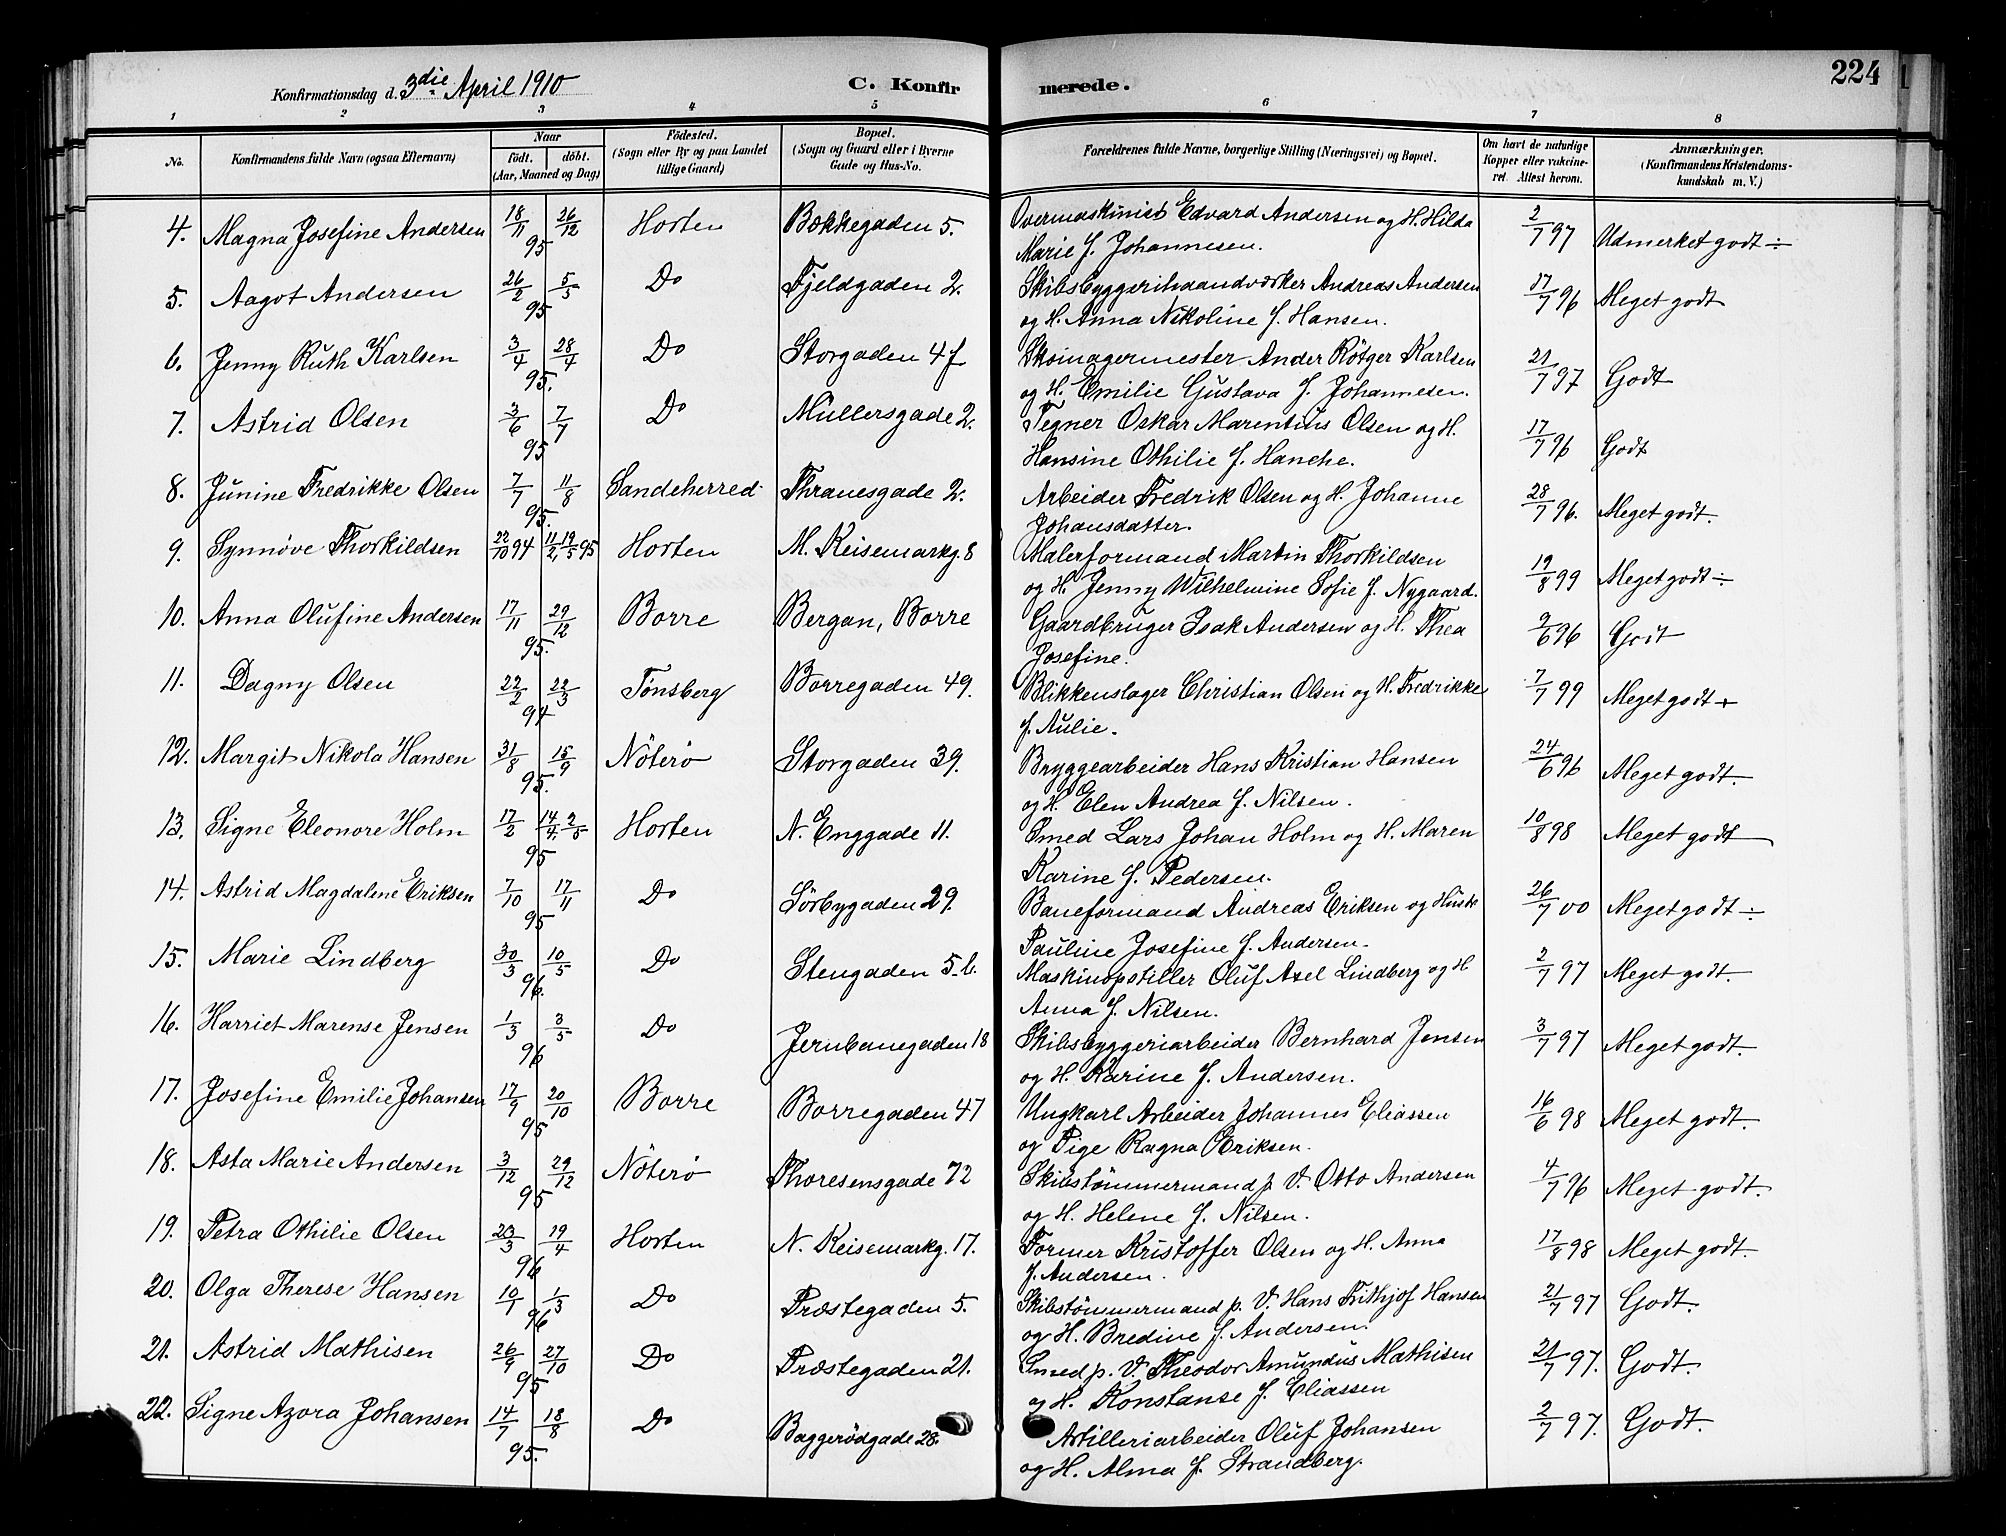 Konfirmationsdag d. 3die April 1910
C. Konfirmerede.
224
1 2 3 4 5 6 7 8
No.
Konfirmandens fulde Navn (ogsaa Efternavn)
Naar
födt. döbt.
(Aar, Maaned og Dag)
Födested.
(Sogn eller By og paa Landet
tillige Gaard)
Bopæl.
(Sogn og Gaard eller i Byerne
Gade og Hus-No.
Forældrenes fulde Navne, borgerlige Stilling (Næringsvei) og Bopæl.
Om havt de naturlige
Kopper eller vakcine-
ret. Attest herom.
Anmærkninger.
(Konfirmandens Kristendoms-
kundskab m. V.)
4. Magna Josefine Andersen 18/11 26/12 95 Horten Bækkegaden 5. Overmaskinist Edvard Andersen og H. Hilda
Marie f. Johannesen. 2/7 97 Udmerket godt ÷
5. Aagot Andersen 26/2 5/5 95 Do Fjeldgaden 2. Skibsbyggerihaandværker Andreas Andersen
og H. Anna Nikoline f. Hansen. 17/7 96 Meget godt
6. Jenny Ruth Karlsen 3/4 28/4 95. Do Storgaden 47 Skomagermester Ander Rötger Karlsen
og H. Emilie Gustava f. Johannesen. 21/7 97 Godt
7. Astrid Olsen 3/6 7/7 95 Do Müllersgade 2. Tegner Oskar Marentius Olsen og H.
Hansine Othilie f. Hanche. 17/7 96 Godt
8. Junine Fredrikke Olsen 7/7 11/8 95. Sandeherred Thranesgade 2. Arbeider Fredrik Olsen og H. Johanne
Johansdatter. 28/7 96. Meget godt.
9. Synnöve Thorkildsen 22/10 94 11/2, 19/5 95 Horten M. Keisemarkg. 8 Malerformand Martin Thorkildsen
og H. Jenny Wilhelmine Sofie f. Nygaard. 19/8 99 Meget godt ÷
10. Anna Olufine Andersen 17/11 29/12 95. Borre Bergan, Borre Gaardbruger Isak Andersen og H. Thea
Josefine. 9/6 96 Godt
11. Dagny Olsen 22/2 22/3 94 Tönsberg Borregaden 49. Blikkenslager Christian Olsen og H. Fredrikke
f. Aulie. 7/7 99 Meget godt +
12. Margit Nikola Hansen 31/8 15/9 95. Nöterö Storgaden 39. Bryggearbeider Hans Kristian Hansen
og H. Elen Andrea f. Nilsen. 24/6 96 Meget godt.
13. Signe Eleonore Holm 17/2 14/4. 2/5 95 Horten N. Enggade 11. Smed Lars Johan Holm og H. Maren
Karine f. Pedersen. 10/8 98 Meget godt
14. Astrid Magdalene Eriksen 7/10 17/11 95 Do Sörbygaden 29. Baneformand Andreas Eriksen og Hustr
Pauline Josefine f. Andersen. 26/7 00 Meget godt ÷
15. Marie Lindberg 30/3 10/5 96. Do Stengaden 5. b. Maskinopstiller Oluf Axel Lindberg og H
Anna f. Nilsen. 2/7 97 Meget godt.
16. Harriet Marense Jensen 1/3 3/5 96 Do Jernbanegaden 18 Skibsbyggeriarbeider Bernhard Jensen
og H. Karine f. Andersen. 3/7 97 Meget godt.
17. Josefine Emilie Johansen 17/9 20/10 95 Borre Borregaden 47 Ungkarl Arbeider Johannes Eliassen
og Pige Ragna Eriksen. 16/6 98 Meget godt.
18. Asta Marie Andersen 3/12 29/12 95 Nöterö Thoresensgade 72 Skibstömmermand p. V. Otto Andersen
og H. Helene f. Nilsen. 4/7 96 Meget godt.
19. Petra Othilie Olsen 23/3 19/4 96 Horten N. Keisemarkg. 17. Former Kristoffer Olsen og H. Anna
f. Andersen. 17/8 98 Meget godt.
20. Olga Therese Hansen 10/1 1/3 96 Do Præstegaden 5. Skibstömmermand p. V. Hans Frithjof Hansen
og H. Bredine f. Andersen. 21/7 97 Godt.
21. Astrid Mathisen 26/9 27/10 95 Do Præstegaden 21. Smed p. V. Theodor Amundus Mathisen
og H. Konstanse f. Eliassen 21/7 97. Godt.
22. Signe Azora Johansen 14/7 18/8 95. Do Baggerödgade 28. Artilleriarbeider Oluf Johansen
og H. Alma f. Strandberg. 2/7 97. Godt.